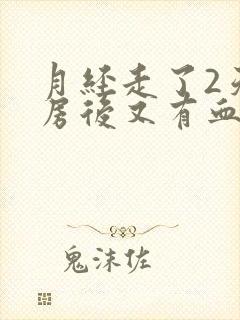 月经走了2天
房後又有血
鬼沫佐